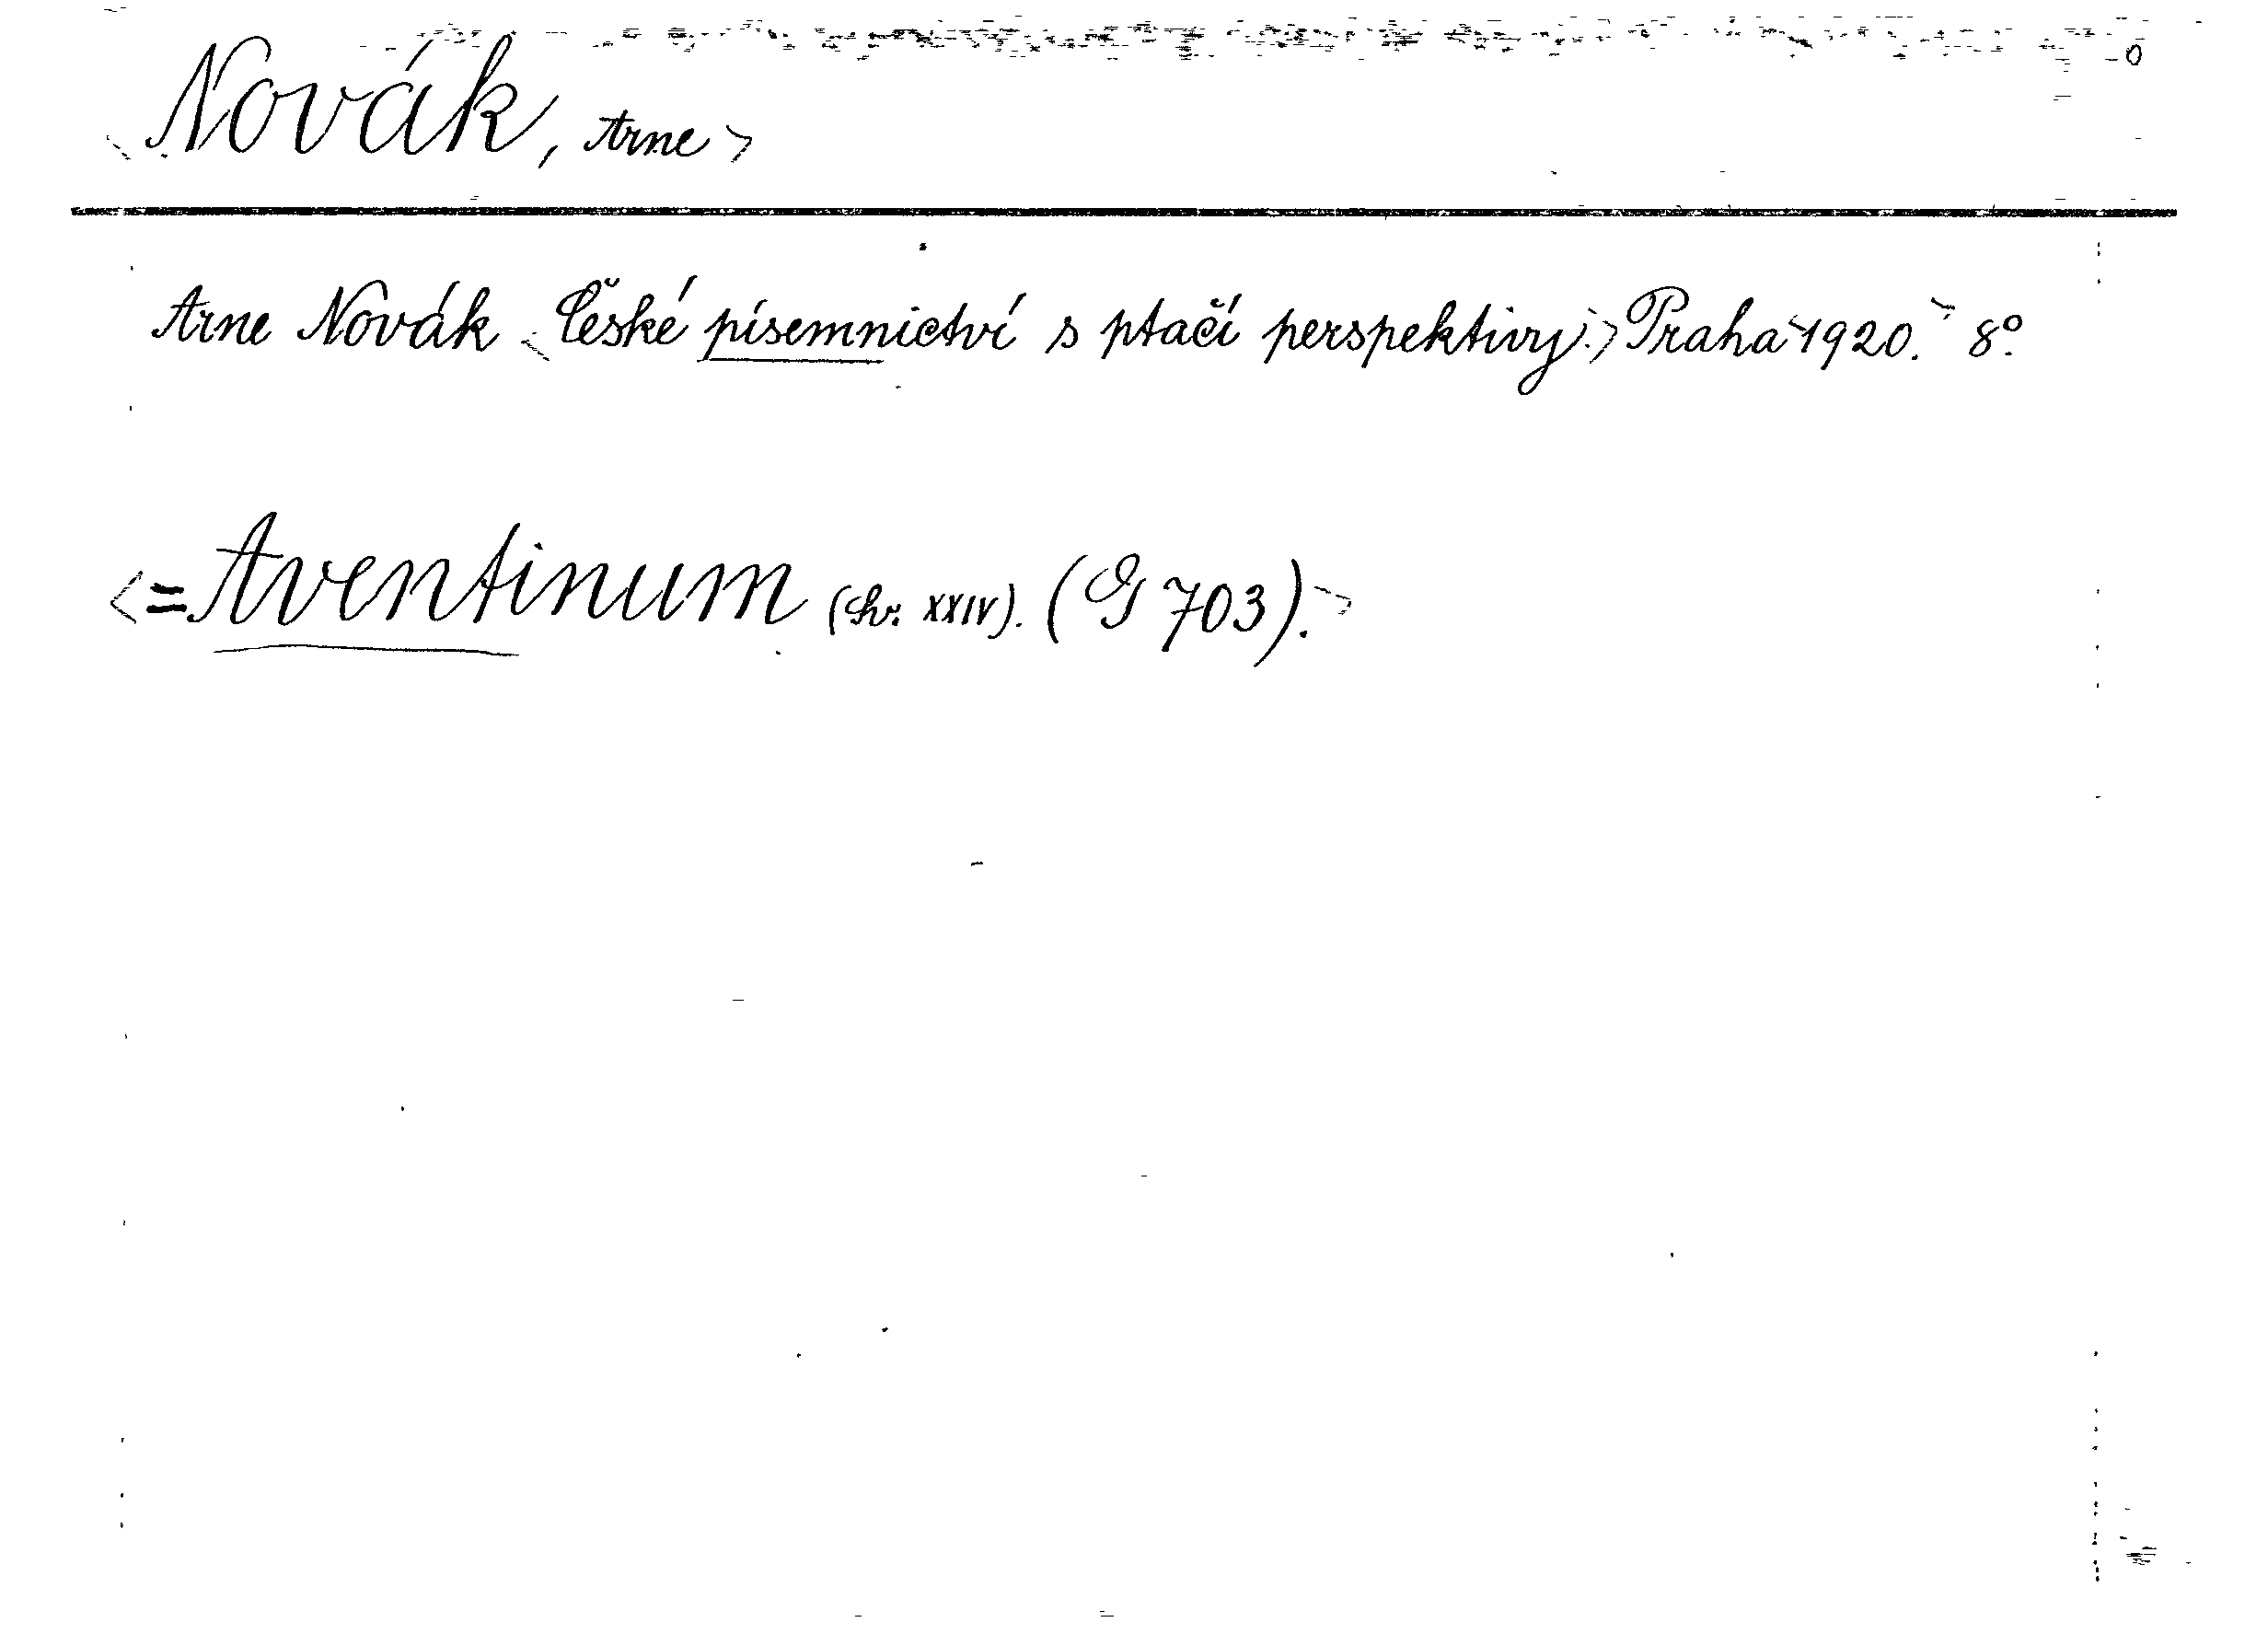 Novák, Arne >
Arne Novák < České písemnictví s ptačí perspektivy. > Praha 1920. 8º.
<= Aventinum (Sv. XXIV). (G 703). >